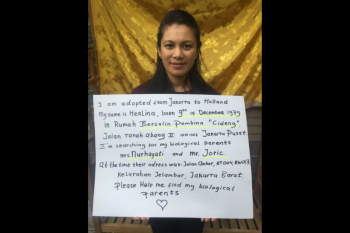 I am adopted from Jakarta to Holland
My name is Herlina, born 9th of December 1979
in Rumah Bersalin Pembina "Cideng"
Jalan Tanah Abang II Jakarta Pusat.
I'm searching for my biological parents
mrs. Nurhayati and mr. Joric.
At the time their adress was: Jalan
Kelurahan Jelambar, Jakarta Barat.
Please Help me find my biological
Parents